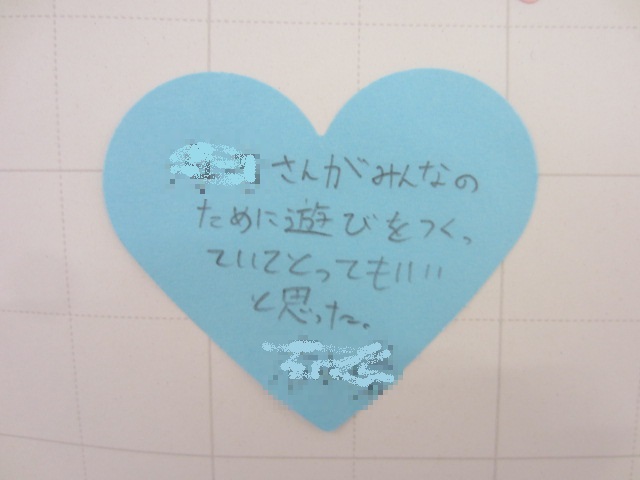 さんがみんなの
ために遊びをつくっ
ていてとってもいい
と思った。